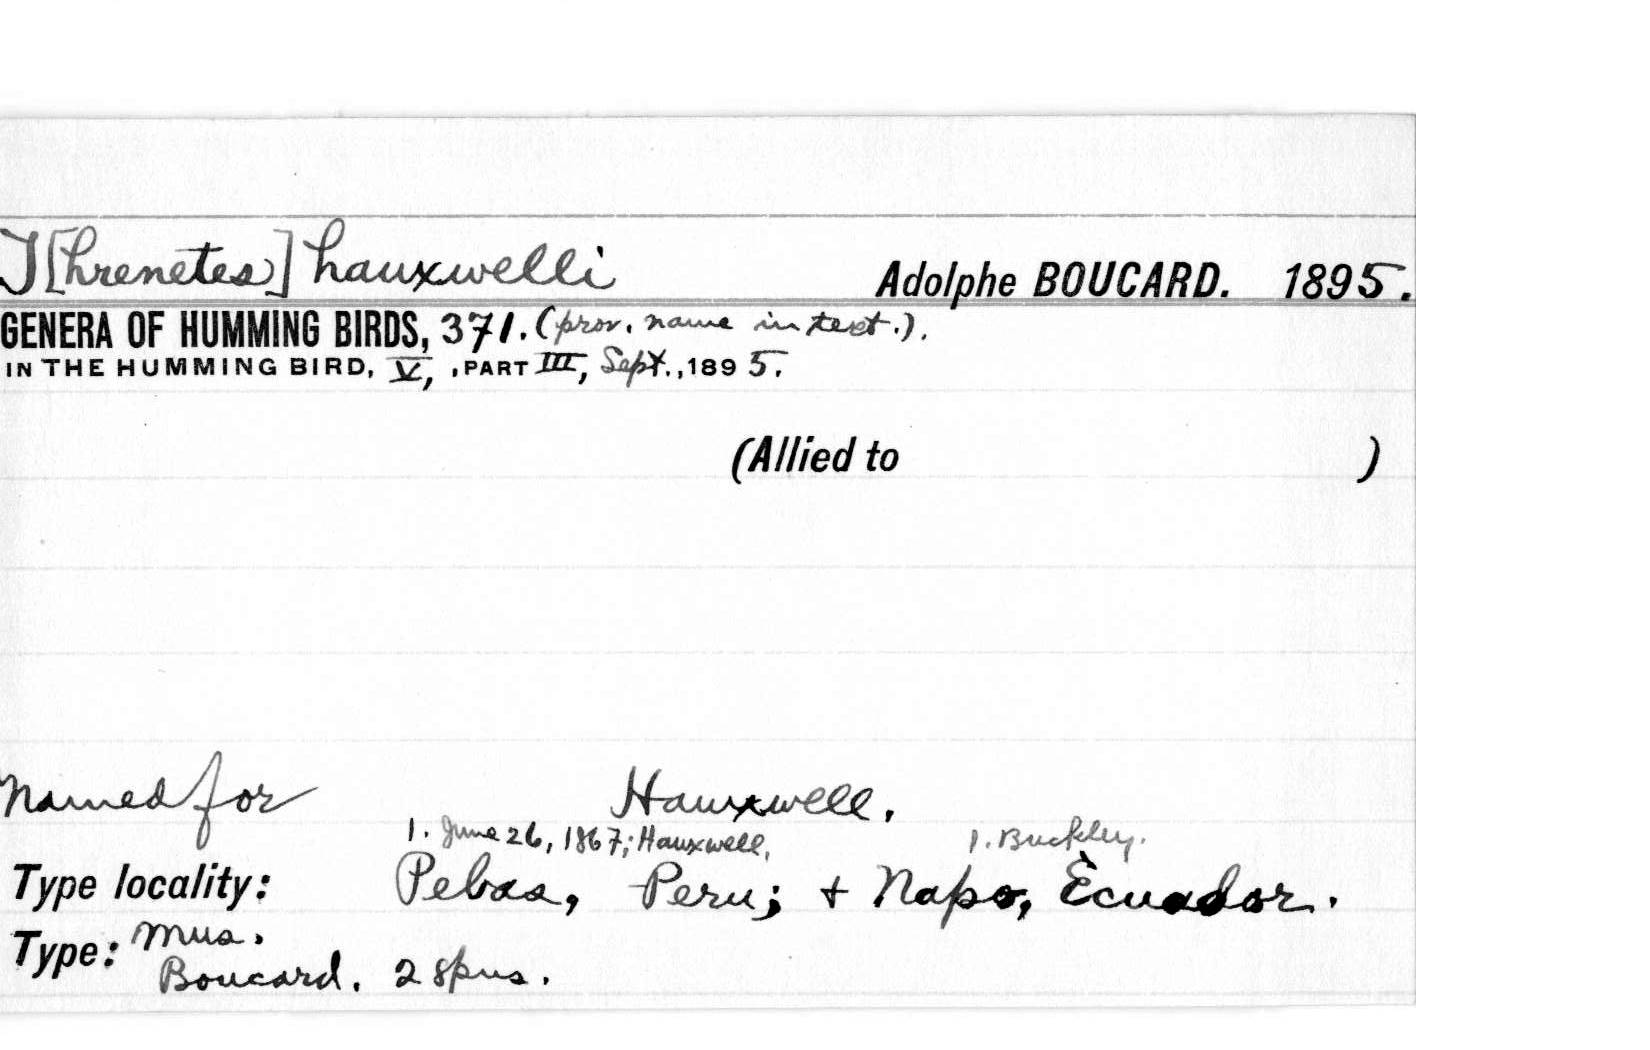 T[hrenetes] hauxwelli Adolphe BOUCARD. 1895.
GENERA OF HUMMING BIRDS, 371. (prov. name in text.).
IN THE HUMMING BIRD, V, , PART III, Sept., 1895.
(Allied to )
Named for Hauxwell.
1. June 26, 1867; Hauxwell, 1. Buckley.
Type locality: Pebas, Peru; + Napo, Ecuador.
Type: Mus.
Boucard. 2 spns.